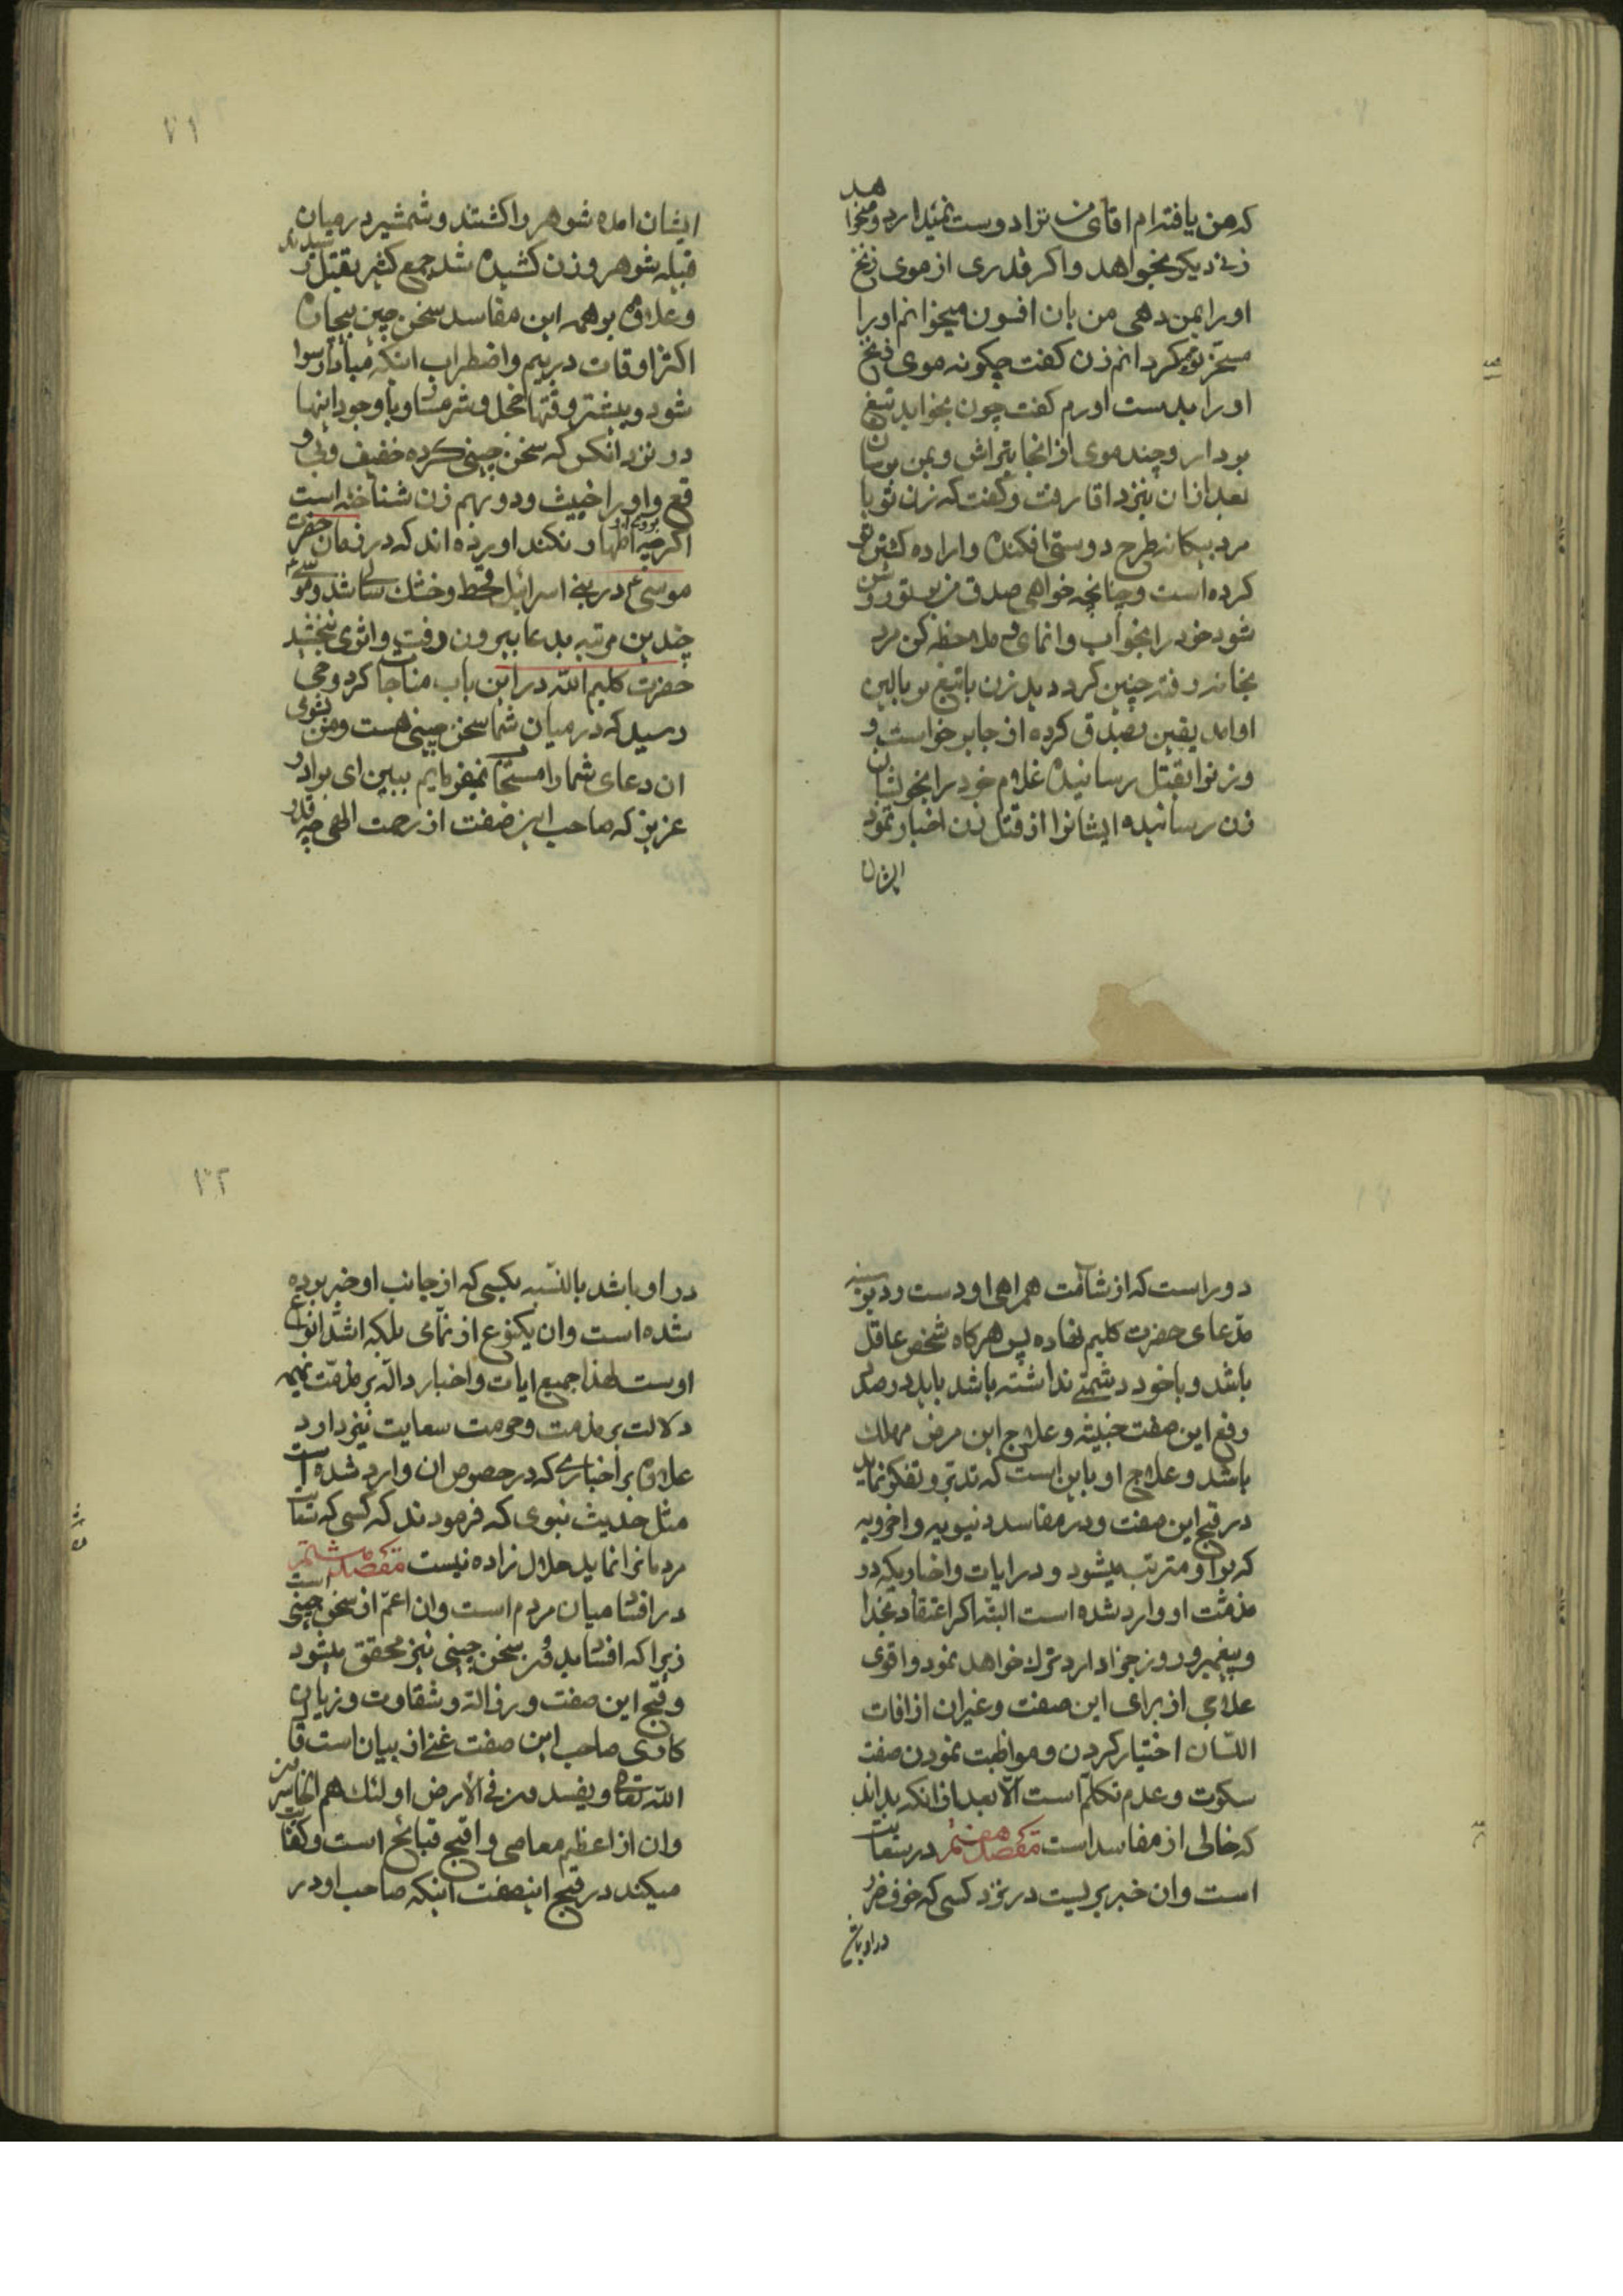 که من یافته ام اقای من ترا دوست نمیدارد و میخواهد
زنی دیکر بخواهد و اکر قدری از موی زنخ
او را بمن دهی من بان افسون میخوانم او را
مسخر تو میکردانم زن کفت چکونه موی زنخ
او را بدست اورم کفت چون بخوابد تیغ
بردار و چند موی از انجا بتراش و بمن برسان
بعد از ان بنزد اقا رفت و کفت که زن تو با
مرد بیکانه طرح دوستی افکنده و اراده کشتن تو
کرده است و چنانچه خواهی صدق من بر تو روشن
شود خود را بخواب وانمای و ملاحظه کن مرد
بخانه رفته چنین کرد دید زن با تیغ بر بالین
او امد یقین بصدق کرده از جا برخواست و
و زنرا بقتل رسانیده غلام خود را بخویشان
زن رسانیده ایشانرا از قتل زن اخبار نمود
ایشان
۷۱
ایشان امده شوهر را کشتند و شمشیر در میان
قبیله شوهر و زن کشیده شد جمع کثیر بقتل رسیدند
و علاوه بر همه این مفاسد سخن چین بیچاره
اکثر اوقات در بیم و اضطراب اینکه مبادا رسوا
شود و بیشتر وقتها خجل و شرمسار و با وجود اینها
در نزد انکس که سخن چینی کرده خفیف و بی و
قع و او را خبیث و دو بهم زن شناخته است
اکرچه بروی او اظهار نکند اورده اند که در زمان حضرت
موسی ع در بنی اسرائیل قحط و خشک سالی شد و موسی ع
چندین مرتبه بدعا بیرون رفت و اثری نبخشید
حضرت کلیم الله در این باب مناجات کرد وحی
رسید که در میان شما سخن چینی هست و من بشومی
ان دعای شما را مستجاب نمیفرمایم ببین ای برادر
عزیز که صاحب این صفت از رحمت الهی چه قدر
دور است که از شامت همراهی او دست رد بر سینه
مدعای حضرت کلیم نهاده پس هرکاه شخص عاقل
باشد و با خود دشمنی نداشته باشد باید در صدد
رفع این صفت خبیثه و علاج این مرض مهلک
باشد و علاج او باین است که تدبر و تفکر نماید
در قبح این صفت و در مفاسد دنیویه و اخرویه
که بر او مترتب میشود و در ایات و اخباریکه در
مذمت او وارد شده است البته اکر اعتقاد بخدا
و پیغمبر و روز جزا دارد ترک خواهد نمود و اقوی
علاجی از برای این صفت و غیر ان از افات
اللسان اختیار کردن و مواظبت نمودن صفت
سکوت و عدم تکلم است الا بعد از انکه بداند
که خالی از مفاسد است مقصد هفتم در سعایت
است و ان خبر بریست در نزد کسی که خوف ضرر
در او باش
۷۲
در او باشد بالنسبه بکسی که از جانب او خبر برده
شده است و ان یکنوع از نمامی بلکه اشد انواع
اوست لهذا جمیع ایات و اخبار داله بر مذمت نمیمه
دلالت بر مذمت و حرمت سعایت نیز دارد
علاوه بر اخباری که در خصوص ان وارد شده است
مثل حدیث نبوی که فرمودند که کسی که سعایت
مردمانرا نماید حلال زاده نیست مقصد هشتم
در افساد میان مردم است و ان اعم از سخن چینی است
زیرا که افساد بدون سخن چینی نیز محقق میشود
و قبح این صفت و رذالت و شقاوت و زیان
کاری صاحب این صفت غنی از بیان است قال
الله تعالی و یفسدون فی الارض اولئک هم الخاسرون
و ان از اعظم معاصی و اقبح قبائح است و کفایت
میکند در قبح اینصفت اینکه صاحب او در